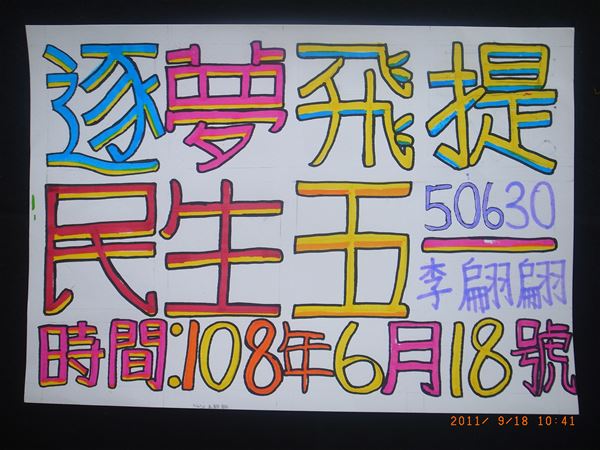 逐夢飛提
民生五
50630
李翩翩
時間:108年6月18號
2011/ 9/18 10:41